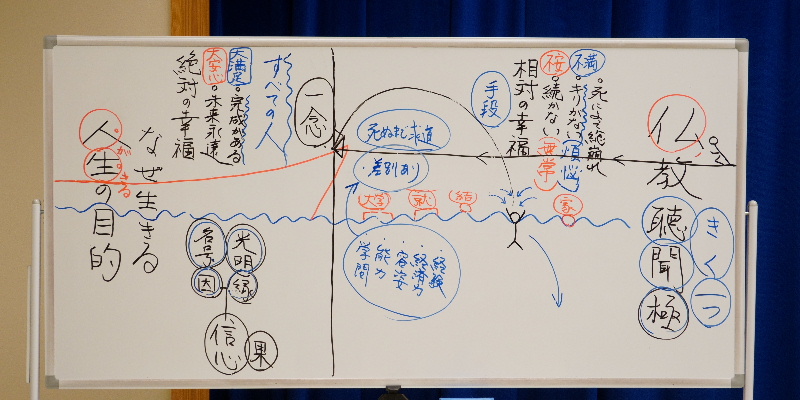 仏教
聴聞
極
きく
一つ
不満
不安
・死によって総崩れ
・キリがない
煩悩
・続かない
無常
相対の幸福
手段
家
結
就
大学
死ぬまで求道
・差別あり
・経験
・経済力
・容姿
・能力
学問
一念
すべての人
大満足
大安心
・完成がある
・未来永遠
絶対の幸福
なぜ生きる
人生の目的
がある
光明
縁
名号
因
信心
果